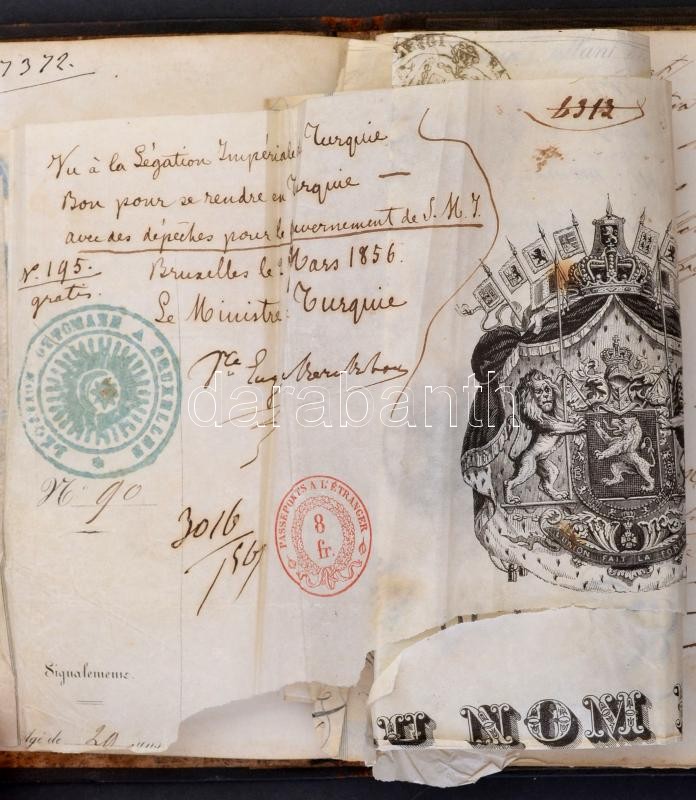 7372.
6313
Vu à la Légation Impériale Turquie
Bon pour se rendre en Turquie —
avec des dépêches pour le gouvernement de S. M. I.
N. 195. Bruxelles le Mars 1856.
gratis. Le Ministre Turquie
LÉGATION OTTOMANE A BRUXELLES
N° 90
3016
PASSEPORTS A L'ÉTRANGER
8
fr.
L'UNION FAIT LA FORCE
Signalement.
Agé de 20 ans
NOM
darabanth